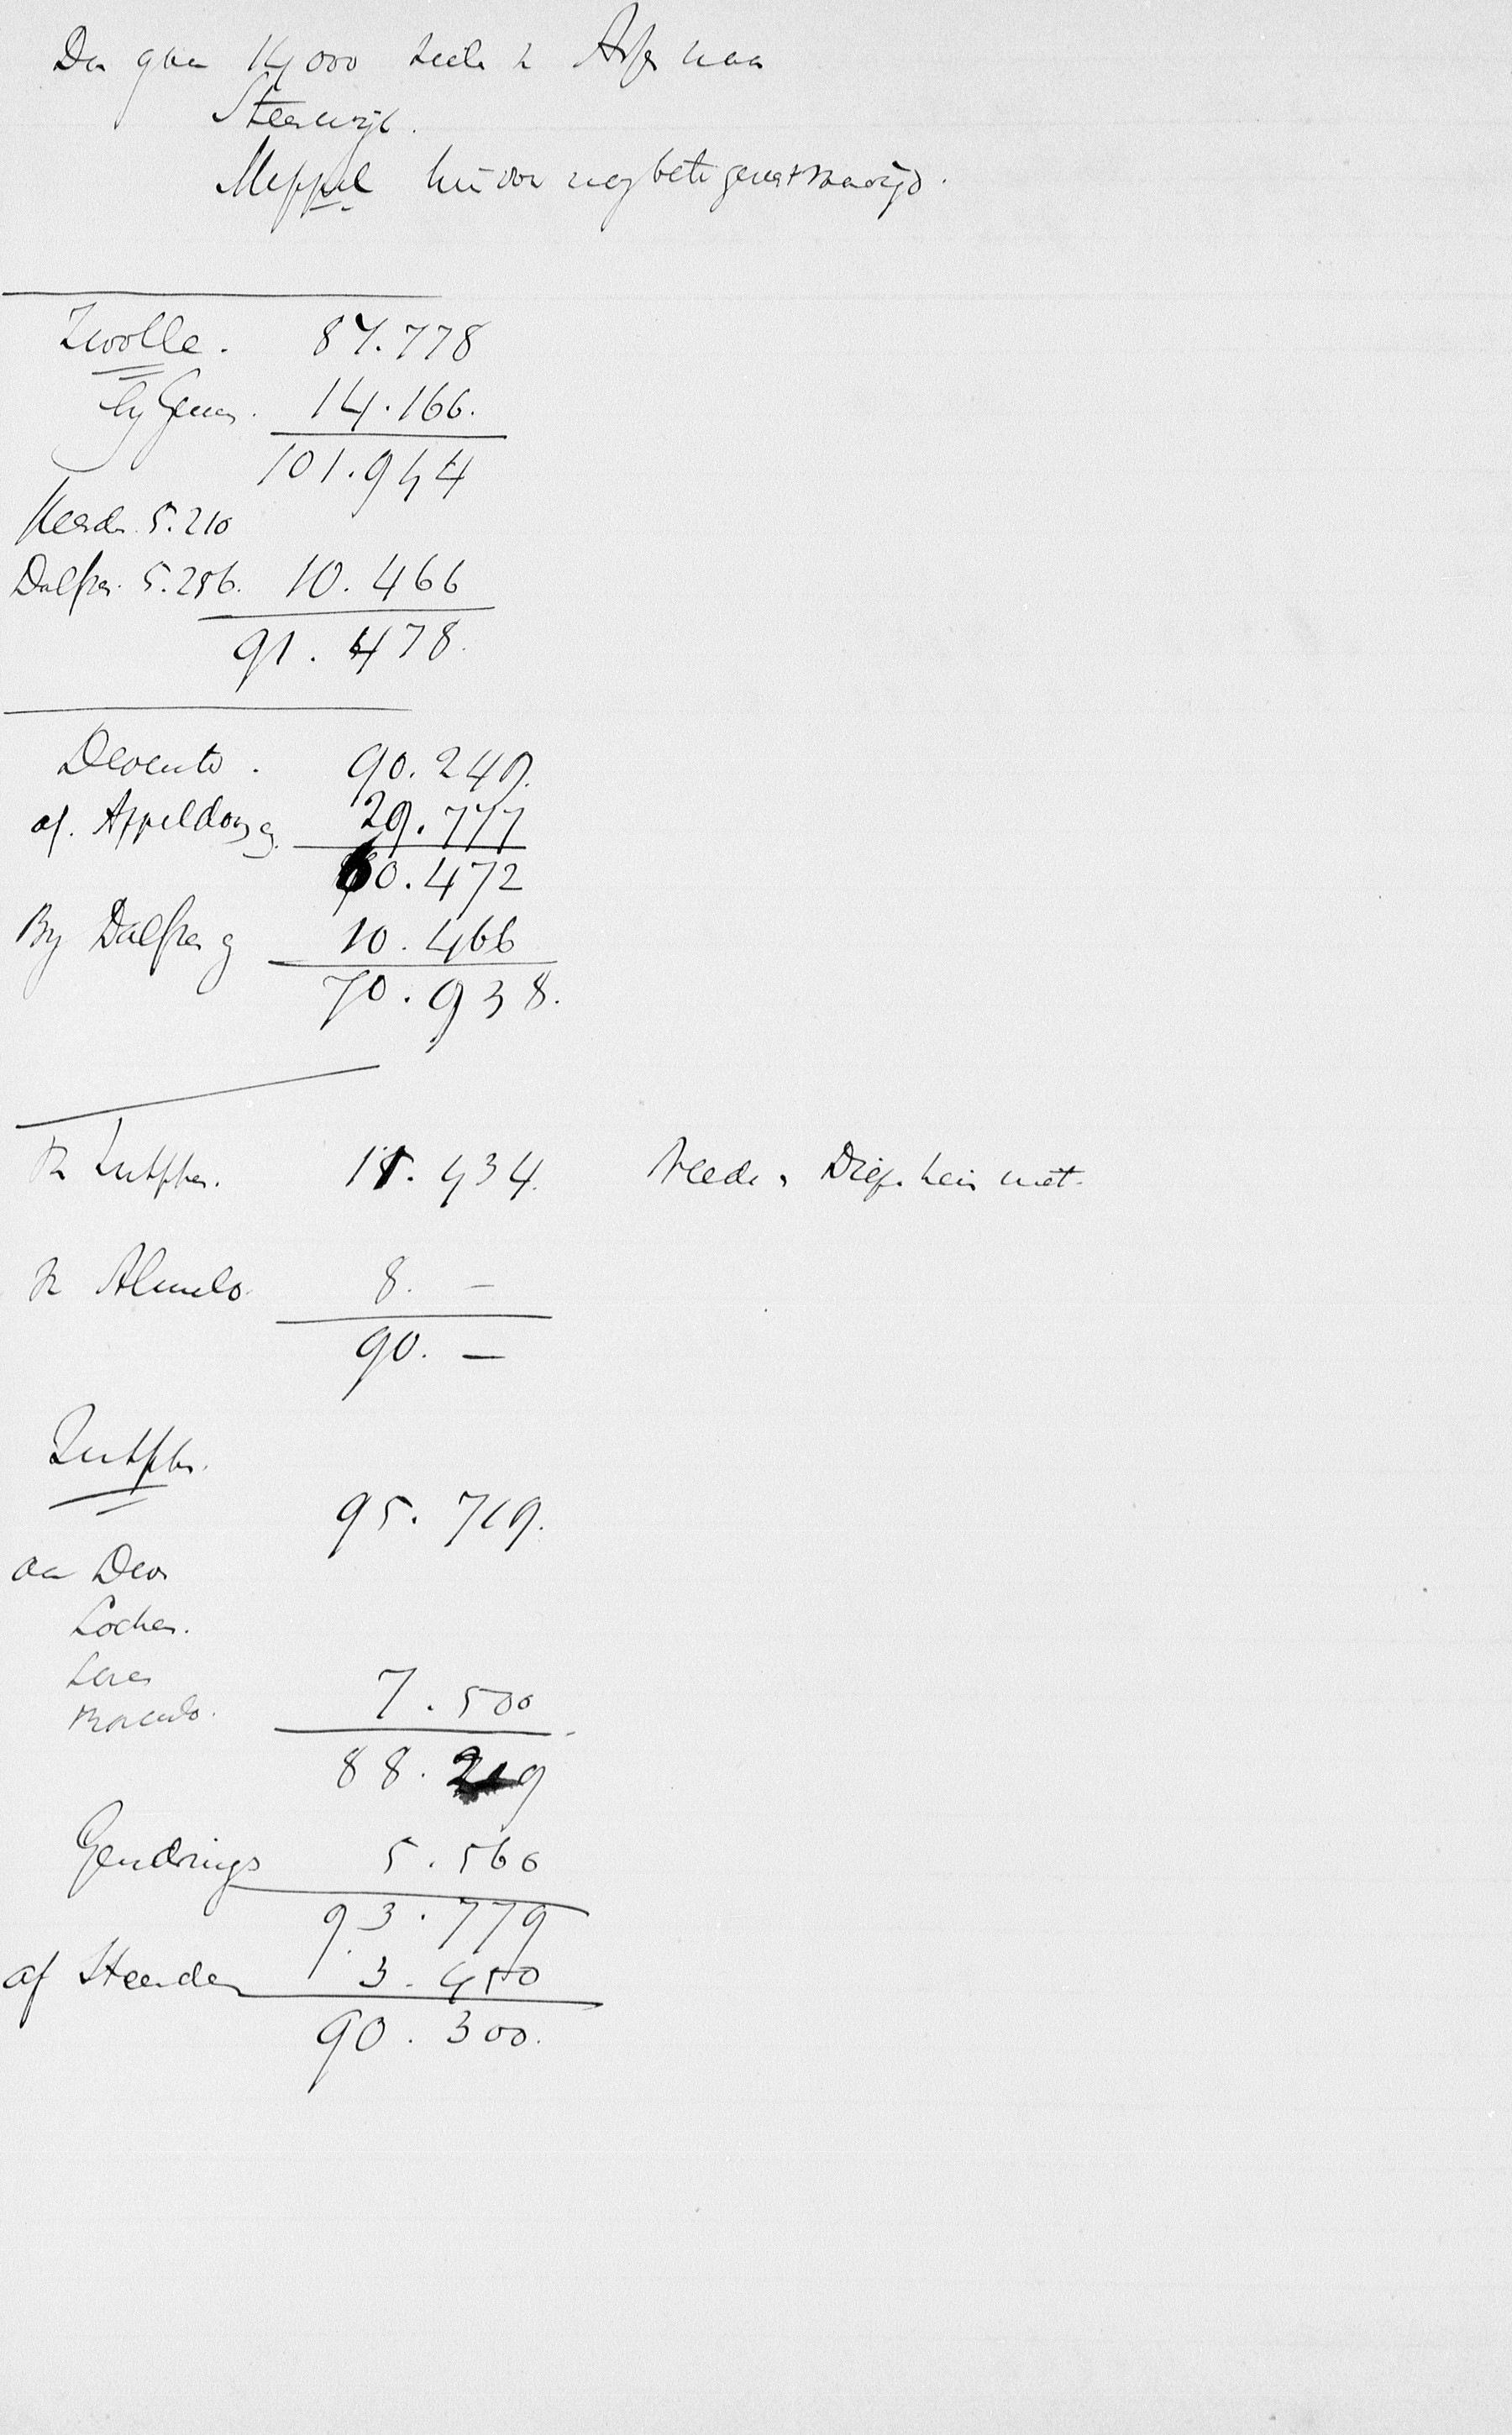 Dan gaan 14000 zielen v Assen naar
Steenwijk.
Meppel hiervoor nog beter genoodzaakt
Zwolle. 87.778
by Genem. 14.166.
101.944
Heerde 5.210
Dalfsen. 5.256. 10.466
91.478.
Deventer. 90.249.
af. Appeldoorn 29.777
60.472
By Dalfsen 10.466
70.938.
v Zutphen. 11.434. Neede, Diepenheim niet.
v Almelo. 8. –
90. –
Zutphen.
95.719.
aan Dev
Lochem.
Laren
Borculo. 7.500
88.219
Gendringen 5.560
93.779
af Steenderen 3.450
90.300.